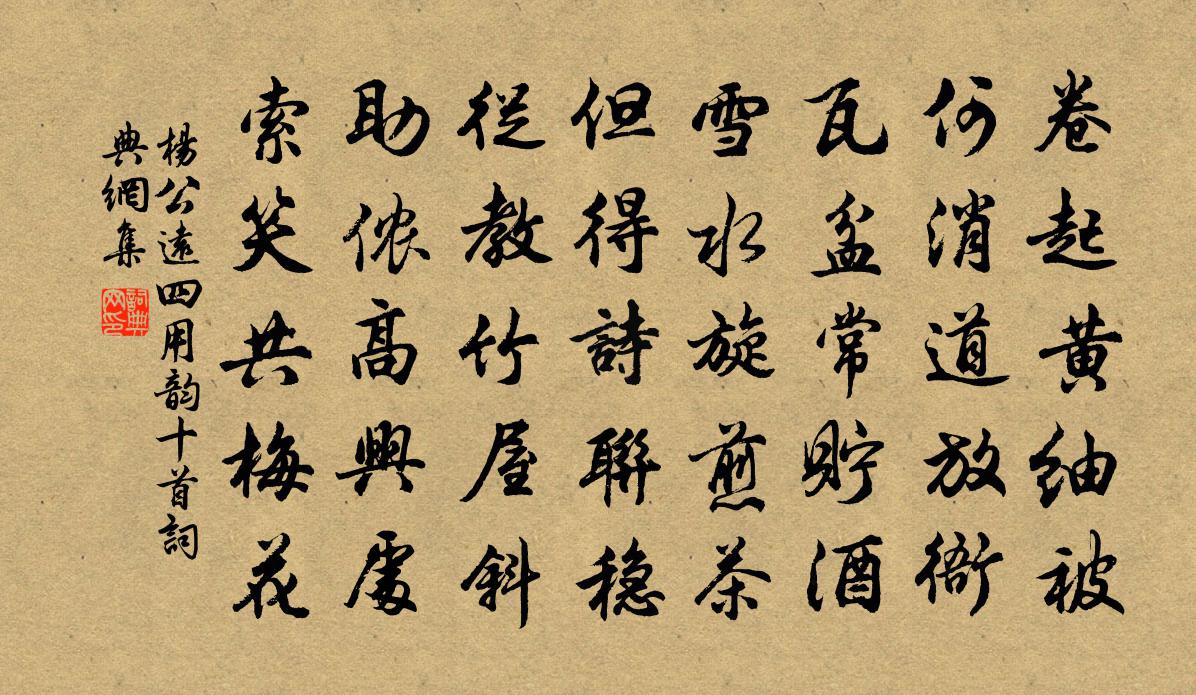 卷起黄紬被
何消道放衙
瓦盆常貯酒
雪水旋煎茶
但得詩聯穏
從教竹屋斜
助侬高興處
索笑共梅花
楊公遠四用韵十首詞
典網集
詞典网印